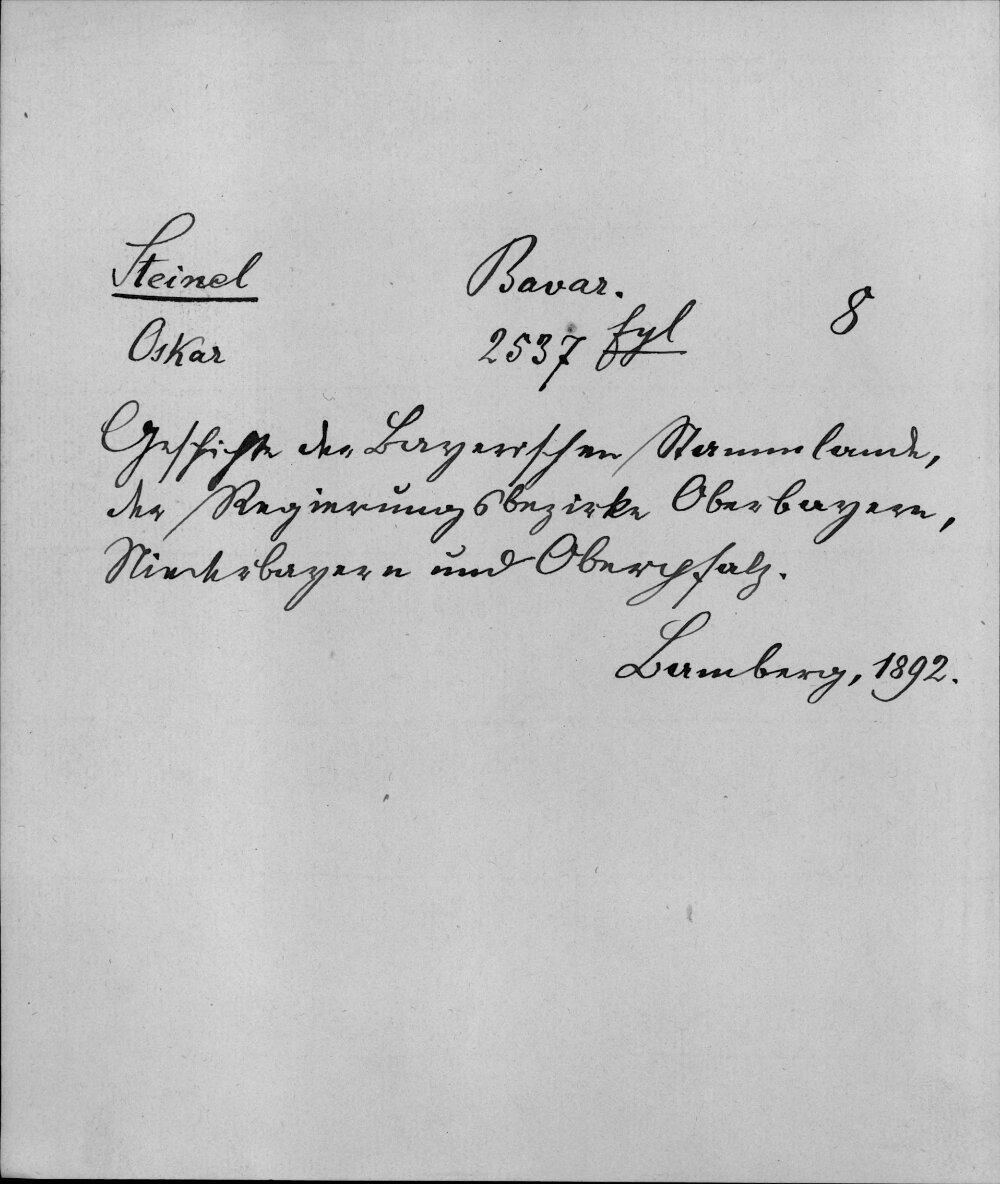 Steinel Bavar. 8
Oskar 2537 fyl
Geschichte der Bayerischen Stammlande,
der Regierungsbezirke Oberbayern,
Niederbayern und Oberpfalz.
Bamberg, 1892.